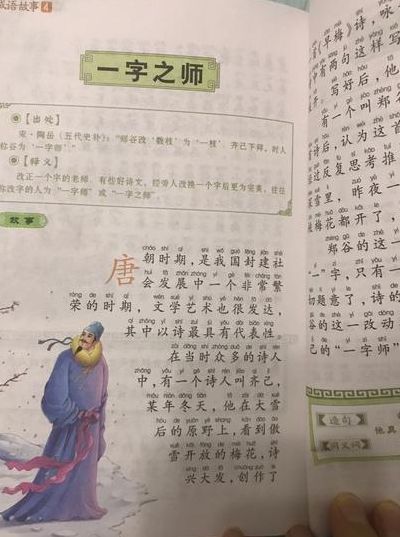 成语故事 4
一字之师
【出处】
宋·陶岳《五代史补》：“郑谷改‘数枝’为‘一枝’，齐己下拜，时人
称谷为‘一字师’。”
【释义】
改正一个字的老师。有些好诗文，经旁人改换一个字后更为完美，往往
称改字的人为“一字师”或“一字之师”。
故事
唐朝时期，是我国封建社
会发展中一个非常繁
荣的时期，文学艺术也很发达，
其中以诗最具有代表性。
在当时众多的诗人
中，有一个诗人叫齐己，
某年冬天，他在大雪
后的原野上，看到傲
雪开放的梅花，诗
兴大发，创作了
《早梅》诗，咏
中有两句这样写
写好后，他
有一个叫郑谷
诗后，认为这首
过反复思考推
雪里，昨夜一
梅花都开了，
郑谷的这一
“一”字，只有一
切题意了，诗的
谷的这一改动
己的“一字师”
【造句】
他真
【同义词】